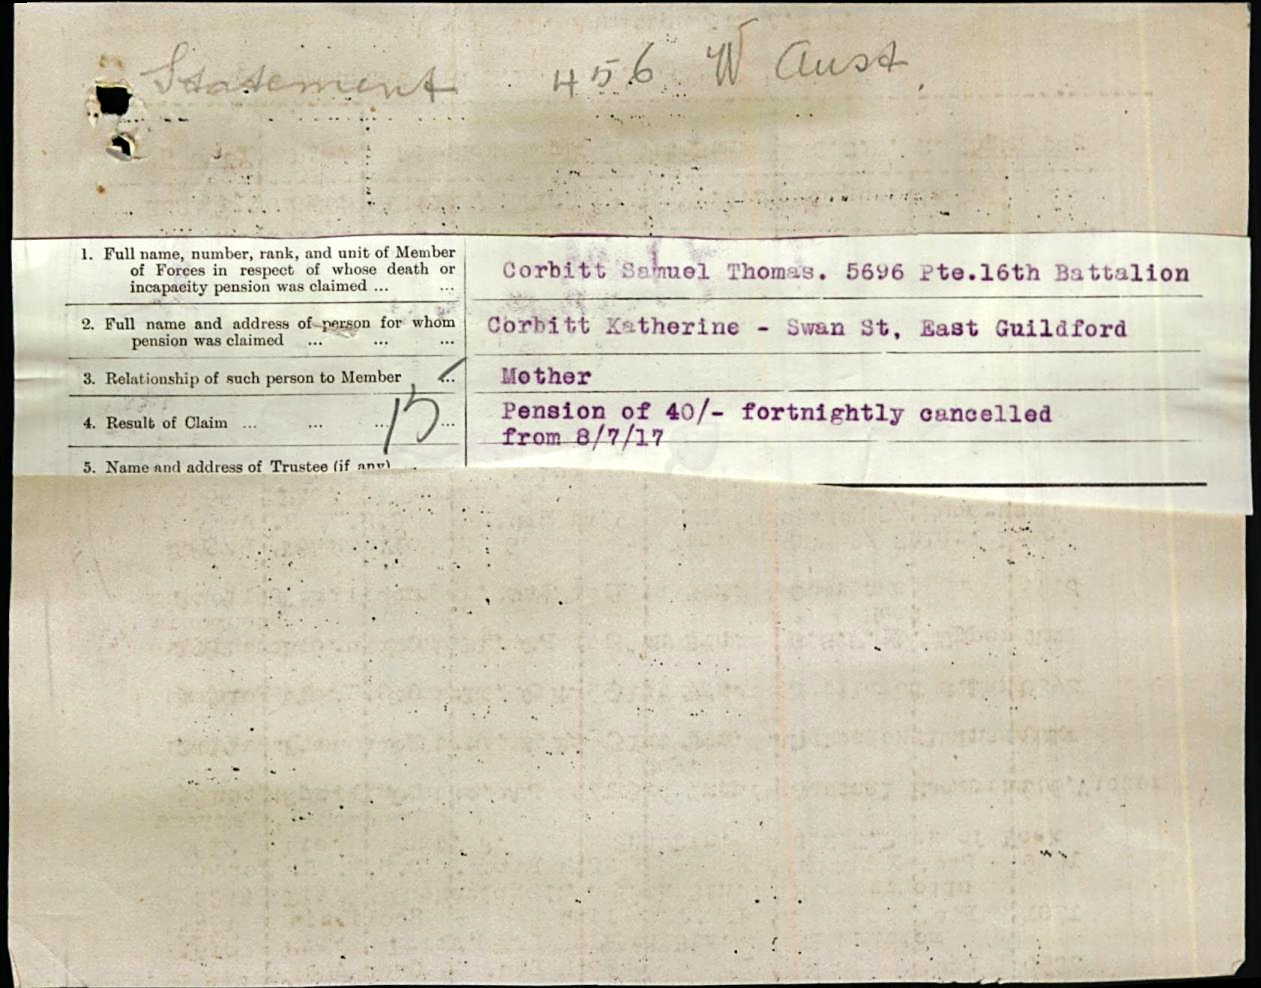 Statement 456 W Aust
1. Full name, number, rank, and unit of Member
of Forces in respect of whose death or
incapacity pension was claimed ... ...
Corbitt Samuel Thomas. 5696 Pte.16th Battalion
2. Full name and address of person for whom
pension was claimed ... ... ...
Corbitt Katherine - Swan St, East Guildford
3. Relationship of such person to Member ...
Mother
4. Result of Claim ... ... ... ...
15
Pension of 40/- fortnightly cancelled
from 8/7/17
5. Name and address of Trustee (if any)